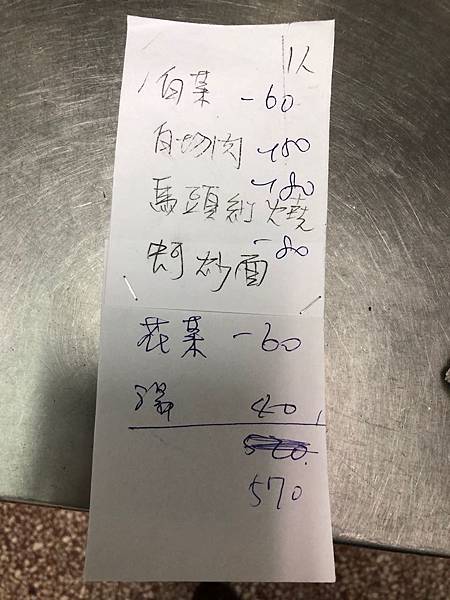 1人
白菜 -60
白切肉 -150
馬頭紅燒 -180
蚵炒面 -80
花菜 -60
湯 40
570